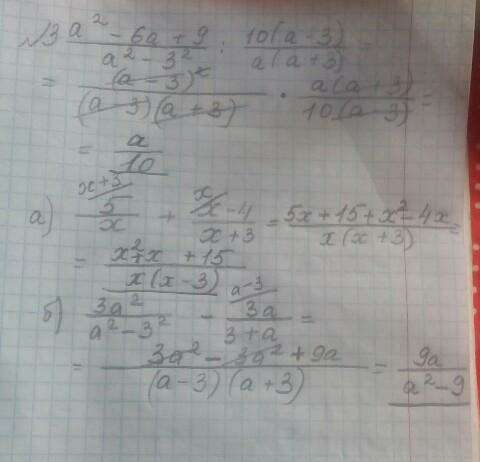 №3 (a² - 6a + 9)/(a² - 3²) : 10(a-3)/a(a+3) =
= (a-3)²/(a-3)(a+3) · a(a+3)/10(a-3) =
= a/10
а) x+3/ 5/x + x/ (x-4)/(x+3) = (5x+15+x²-4x)/x(x+3) =
= (x²+x+15)/x(x-3)
б) 3a²/(a²-3²) - a-3/ 3a/(3+a) =
= (3a² - 3a² + 9a)/(a-3)(a+3) = 9a/(a²-9)